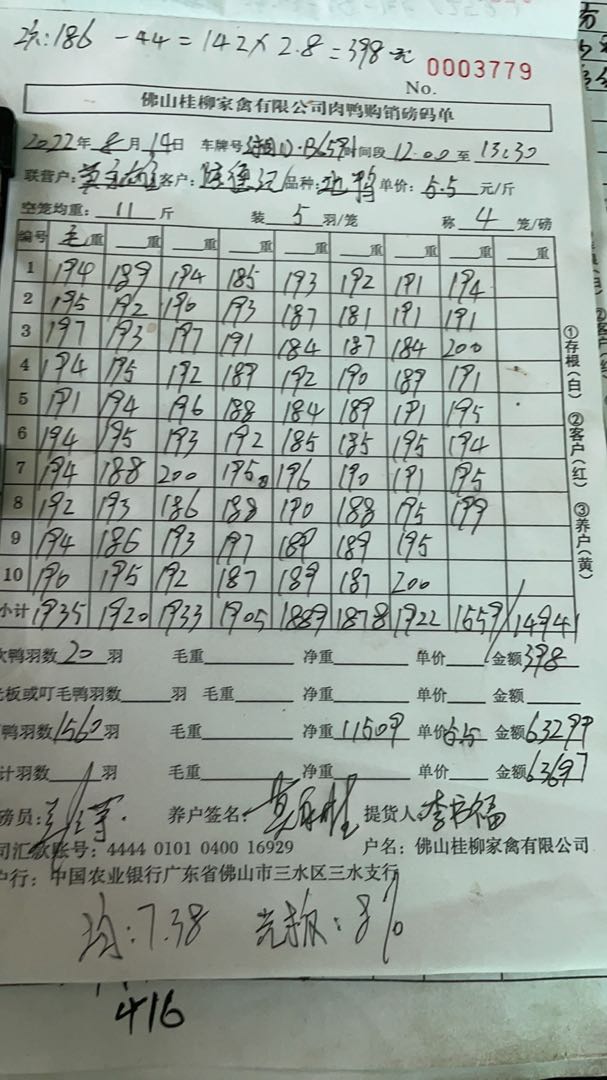 次:186 - 44 = 142 × 2.8 = 398元
No. 0003779
佛山桂柳家禽有限公司肉鸭购销磅码单
2022年8月14日 车牌号 时间段 12:00 至 13:30
联营户: 客户: 品种: 鸭 单价: 5.5 元/斤
空笼均重: 11 斤 装 5 羽/笼 称 4 笼/磅
编号 毛重 重 重 重 重 重 重 重 重
1 194 189 194 185 193 192 191 194
2 195 192 190 193 187 181 191 191
3 197 193 197 191 184 187 184 200
4 194 195 192 189 192 190 189 191
5 191 194 196 188 184 189 191 195
6 194 195 193 192 185 185 195 194
7 194 188 200 195 196 190 191 195
8 192 193 186 188 190 188 195 199
9 194 186 193 197 189 189 195
10 190 195 192 187 189 187 200
小计 1935 1920 1933 1905 1889 1878 1922 1559 14941
次鸭羽数 20 羽 毛重 净重 单价 金额 398
光板或叮毛鸭羽数 羽 毛重 净重 单价 金额
鸭羽数 1560 羽 毛重 净重 11509 单价 5.5 金额 63299
计羽数 羽 毛重 净重 单价 金额 63697
磅员: 养户签名: 提货人: 李 福
司汇款账号: 4444 0101 0400 16929 户名: 佛山桂柳家禽有限公司
户行: 中国农业银行广东省佛山市三水区三水支行
均:7.38 光板:8%
416
①存根(白) ②客户(红) ③养户(黄)